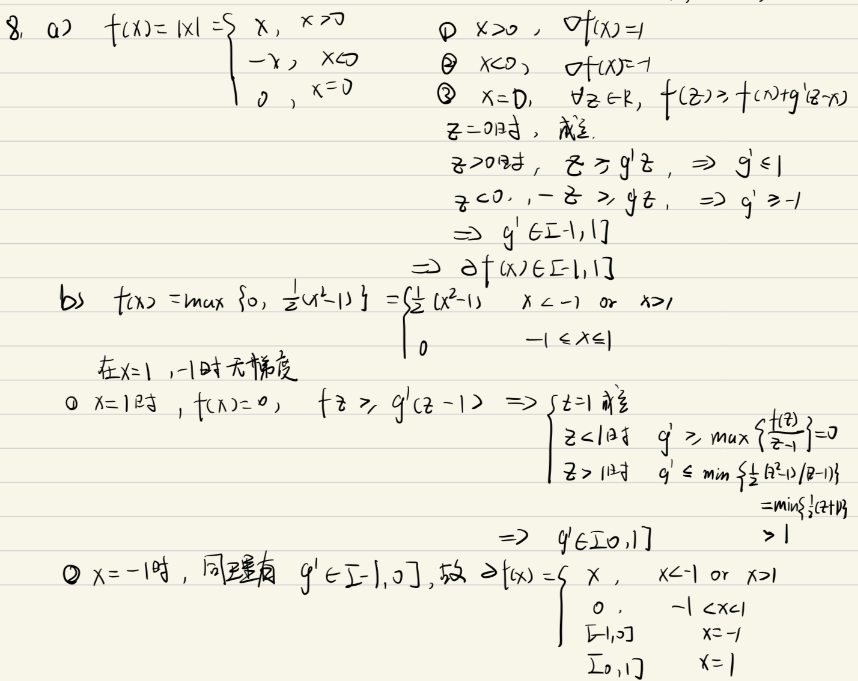 8. a) f(x) = |x| = { x, x>0
① x>0, ∇f(x)=1
-x, x<0
② x<0, ∇f(x)=-1
0, x=0
③ x=0, ∀z∈R, f(z)≥f(x)+g'(z-x)
z=0时, 成立.
z>0时, z≥g'z, ⇒ g'≤1
z<0, -z≥g'z, ⇒ g'≥-1
⇒ g'∈[-1,1]
⇒ ∂f(x)∈[-1,1]
b) f(x) = max {0, ½(x²-1)} = { ½(x²-1) x<-1 or x>1
0 -1≤x≤1
在x=1, -1时无梯度
① x=1时, f(x)=0, fz≥g'(z-1) ⇒ { z=1 成立
z<1时 g'≥max{f(z)/(z-1)}=0
z>1时 g'≤min{½(z²-1)/(z-1)}
=min{½(z+1)}
>1
⇒ g'∈[0,1]
② x=-1时, 同理有 g'∈[-1,0], 故 ∂f(x) = { x, x<-1 or x>1
0. -1<x<1
[-1,0] x=-1
[0,1] x=1